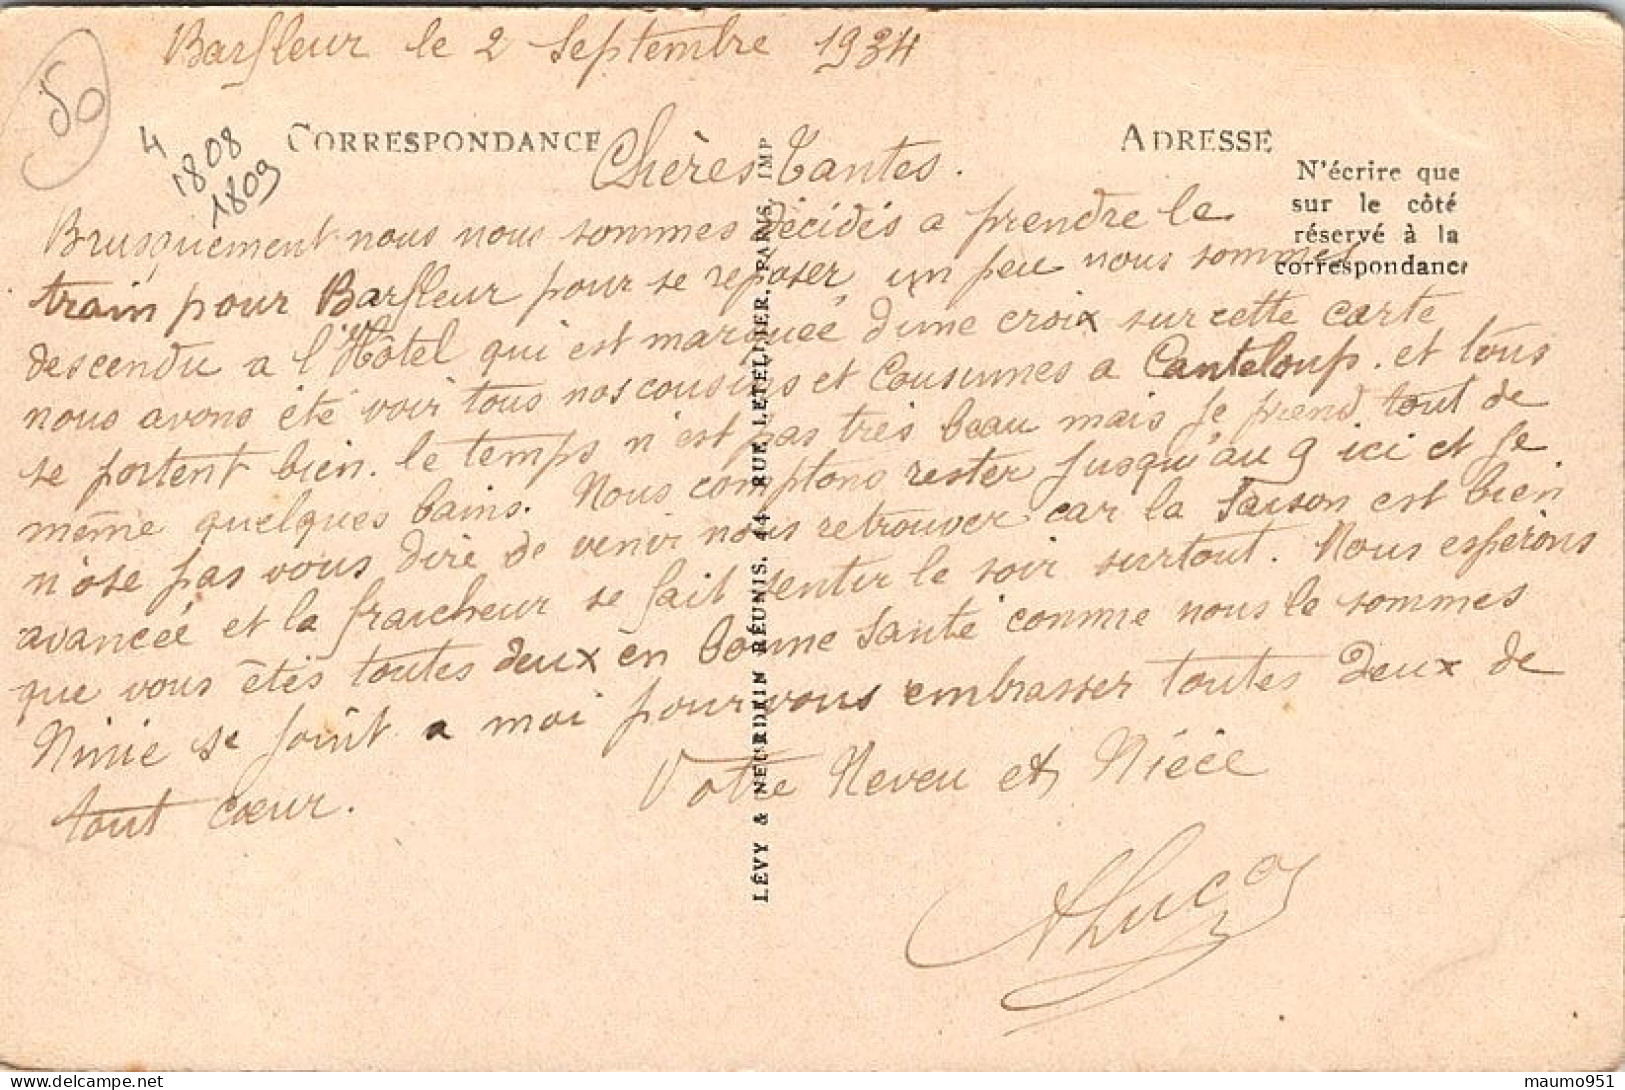 Barfleur le 2 Septembre 1934
50
4
1808
1809
CORRESPONDANCE
ADRESSE
N'écrire que
sur le côté
réservé à la
correspondance
Chères Tantes.
Brusquement nous nous sommes décidés a prendre le
train pour Barfleur pour se reposer un peu nous sommes
descendu a l'Hôtel qui est marquée d'une croix sur cette carte
nous avons été voir tous nos cousins et cousinnes a Canteloup. et tous
se portent bien. le temps n'est pas très beau mais je prend tout de
même quelques bains. Nous comptons rester jusqu'au 9 ici et je
n'ose pas vous dire de venir nous retrouver car la saison est bien
avancée et la fraicheur se fait sentir le soir surtout. Nous espérons
que vous êtes toutes deux en bonne santé comme nous le sommes
Ninie se joint a moi pour vous embrasser toutes deux de
tout cœur.
Votre Neveu et Nièce
ALucas
LÉVY & NEURDEIN RÉUNIS, 44, RUE LETELLIER, PARIS, IMP
maumo951